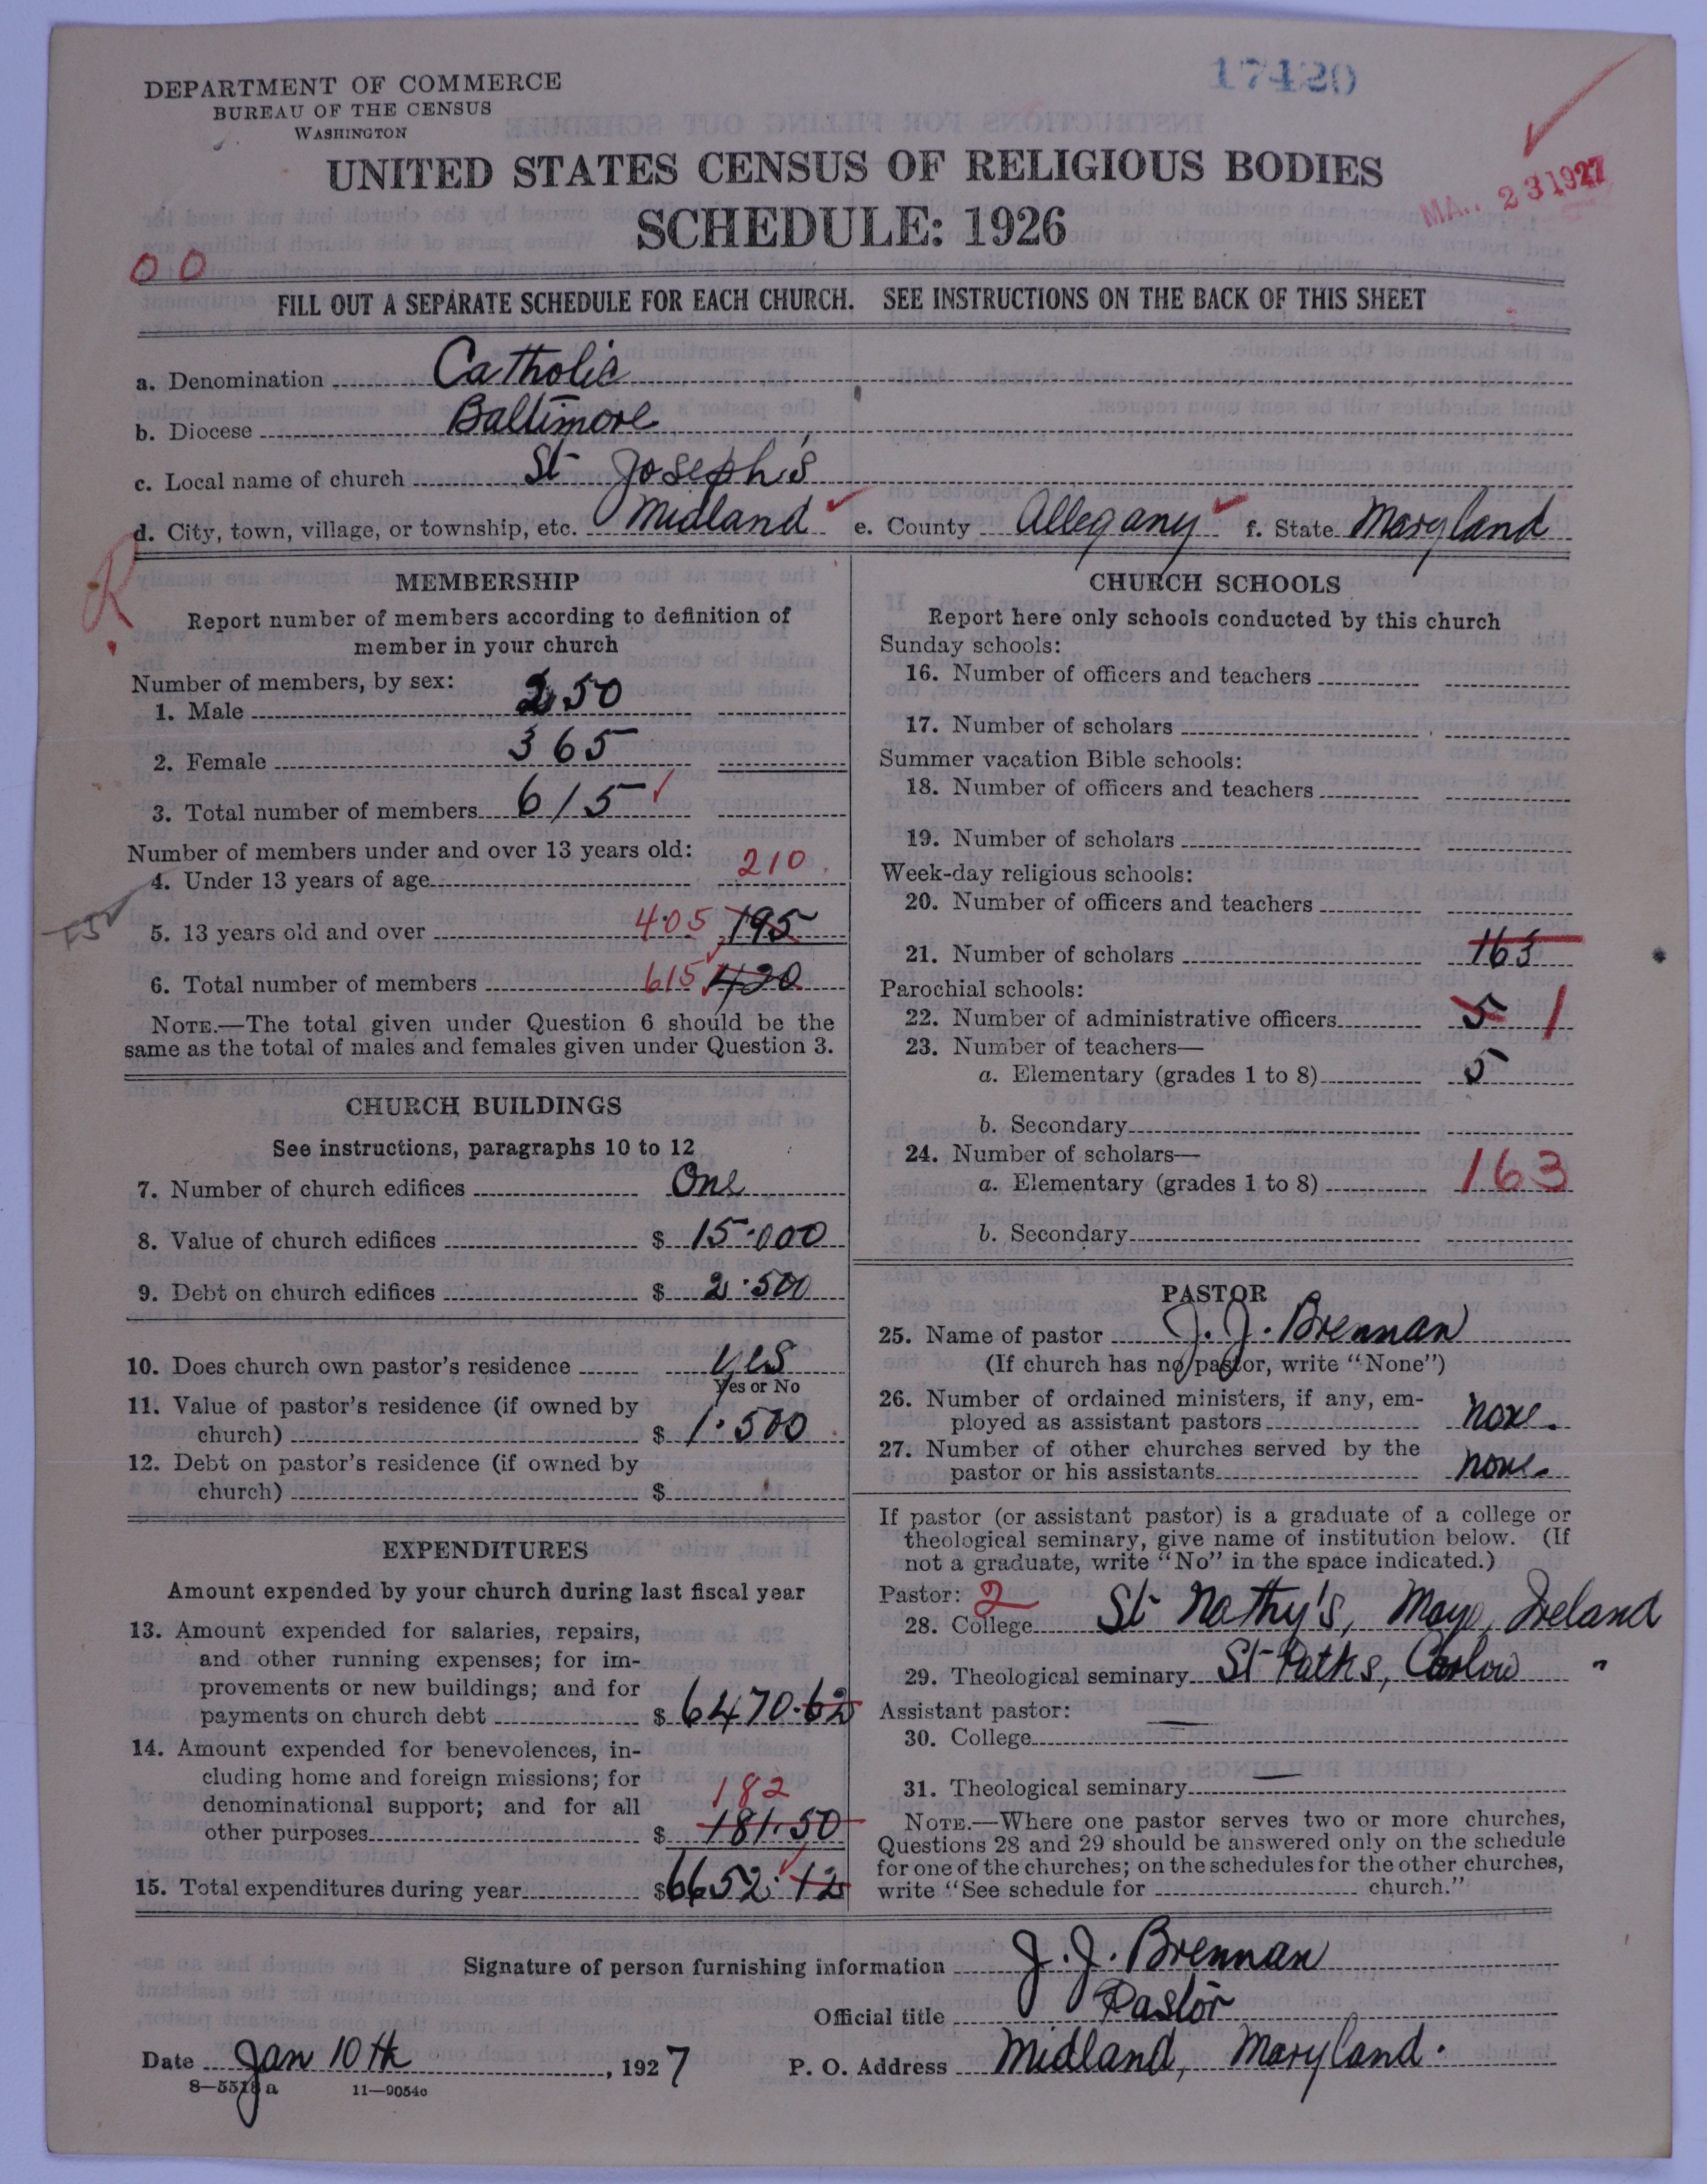 17420
DEPARTMENT OF COMMERCE
BUREAU OF THE CENSUS
WASHINGTON
UNITED STATES CENSUS OF RELIGIOUS BODIES
SCHEDULE: 1926
23 1927
00
FILL OUT A SEPARATE SCHEDULE FOR EACH CHURCH. SEE INSTRUCTIONS ON THE BACK OF THIS SHEET
a. Denomination Catholic
b. Diocese Baltimore
c. Local name of church St Joseph's
d. City, town, village, or township, etc. Midland e. County Allegany f. State Maryland
R
MEMBERSHIP
Report number of members according to definition of
member in your church
Number of members, by sex:
1. Male 250
2. Female 365
3. Total number of members 615
Number of members under and over 13 years old:
4. Under 13 years of age 210
5. 13 years old and over 405 195
6. Total number of members 615 420
NOTE.—The total given under Question 6 should be the
same as the total of males and females given under Question 3.
CHURCH BUILDINGS
See instructions, paragraphs 10 to 12
7. Number of church edifices One
8. Value of church edifices $ 15.000
9. Debt on church edifices $ 2.500
10. Does church own pastor's residence yes
Yes or No
11. Value of pastor's residence (if owned by
church) $ 1.500
12. Debt on pastor's residence (if owned by
church) $
EXPENDITURES
Amount expended by your church during last fiscal year
13. Amount expended for salaries, repairs,
and other running expenses; for im-
provements or new buildings; and for
payments on church debt $ 6470.62
14. Amount expended for benevolences, in-
cluding home and foreign missions; for
denominational support; and for all 182
other purposes $ 181.50
15. Total expenditures during year $6652.12
CHURCH SCHOOLS
Report here only schools conducted by this church
Sunday schools:
16. Number of officers and teachers
17. Number of scholars
Summer vacation Bible schools:
18. Number of officers and teachers
19. Number of scholars
Week-day religious schools:
20. Number of officers and teachers
21. Number of scholars 163
Parochial schools:
22. Number of administrative officers 5 1
23. Number of teachers—
a. Elementary (grades 1 to 8) 5
b. Secondary
24. Number of scholars—
a. Elementary (grades 1 to 8) 163
b. Secondary
PASTOR
25. Name of pastor J. J. Brennan
(If church has no pastor, write "None")
26. Number of ordained ministers, if any, em-
ployed as assistant pastors none.
27. Number of other churches served by the
pastor or his assistants none.
If pastor (or assistant pastor) is a graduate of a college or
theological seminary, give name of institution below. (If
not a graduate, write "No" in the space indicated.)
Pastor: 2
28. College St Nathy's, Mayo, Ireland
29. Theological seminary St Patks, Carlow "
Assistant pastor:
30. College —
31. Theological seminary —
NOTE.—Where one pastor serves two or more churches,
Questions 28 and 29 should be answered only on the schedule
for one of the churches; on the schedules for the other churches,
write "See schedule for church."
Signature of person furnishing information J. J. Brennan
Official title Pastor
Date Jan 10th, 1927 P. O. Address Midland, Maryland.
8—5518a 11—9054c